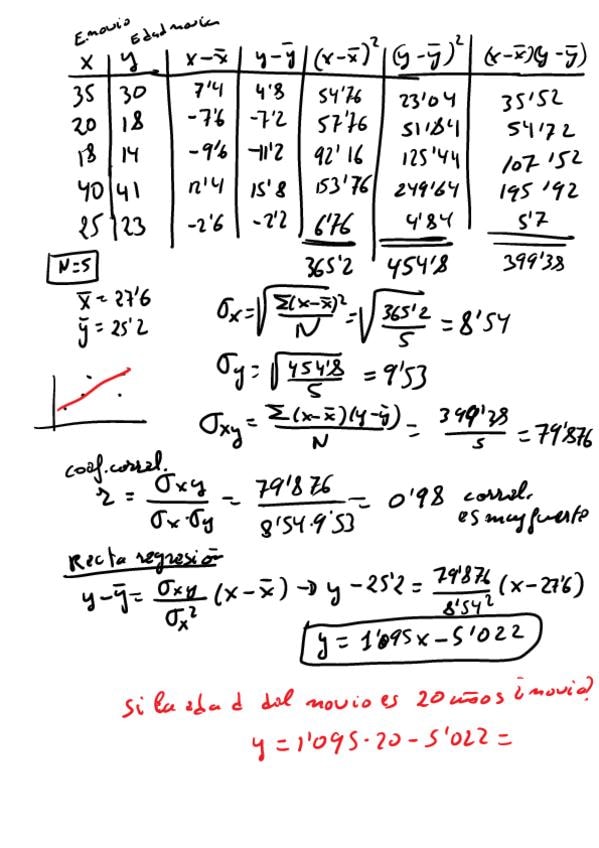 E.novio Edad novia
x y x-x̄ y-ȳ (x-x̄)² (y-ȳ)² (x-x̄)(y-ȳ)
35 30 7'4 4'8 54'76 23'04 35'52
20 18 -7'6 -7'2 57'76 51'84 54'72
18 14 -9'6 -11'2 92'16 125'44 107'52
40 41 12'4 15'8 153'76 249'64 195'92
25 23 -2'6 -2'2 6'76 4'84 5'7
N=5 365'2 454'8 399'38
x̄ = 27'6
ȳ = 25'2
σx = √(Σ(x-x̄)²/N) = √(365'2/5) = 8'54
σy = √(454'8/5) = 9'53
σxy = Σ(x-x̄)(y-ȳ)/N = 399'38/5 = 79'876
coef. correl.
r = σxy/(σx·σy) = 79'876/(8'54·9'53) = 0'98 correl. es muy fuerte
Recta regresión
y-ȳ = σxy/σx² (x-x̄) → y-25'2 = 79'876/8'54² (x-27'6)
y = 1'095x - 5'022
Si la edad del novio es 20 años ¿novia?
y = 1'095·20 - 5'022 =